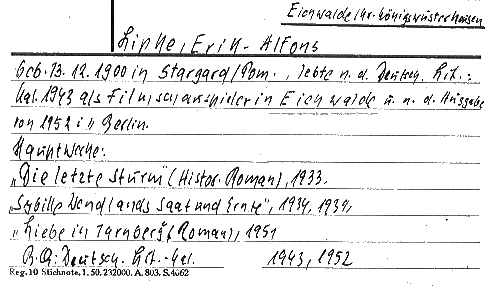 Eichwalde Kr. Königswusterhausen
Lipke, Erik-Alfons
Geb. 13. 12. 1900 in Stargard/Pom., lebte n. d. Deutsch. Lit.:
Kal. 1943 als Filmschauspieler in Eichwalde u. n. d. Ausgabe
von 1952 in Berlin.
Hauptwerke:
„Die letzte Sturm" (Histor. Roman), 1933.
„Sybille Wendlands Saat und Ernte", 1934, 1939,
„Liebe in Turnberg" (Roman), 1951
B. Q: Deutsch. Lit.-Kal. 1943, 1952
Reg. 10 Stichnote. 1. 50. 232000. A. 803. S. 4662